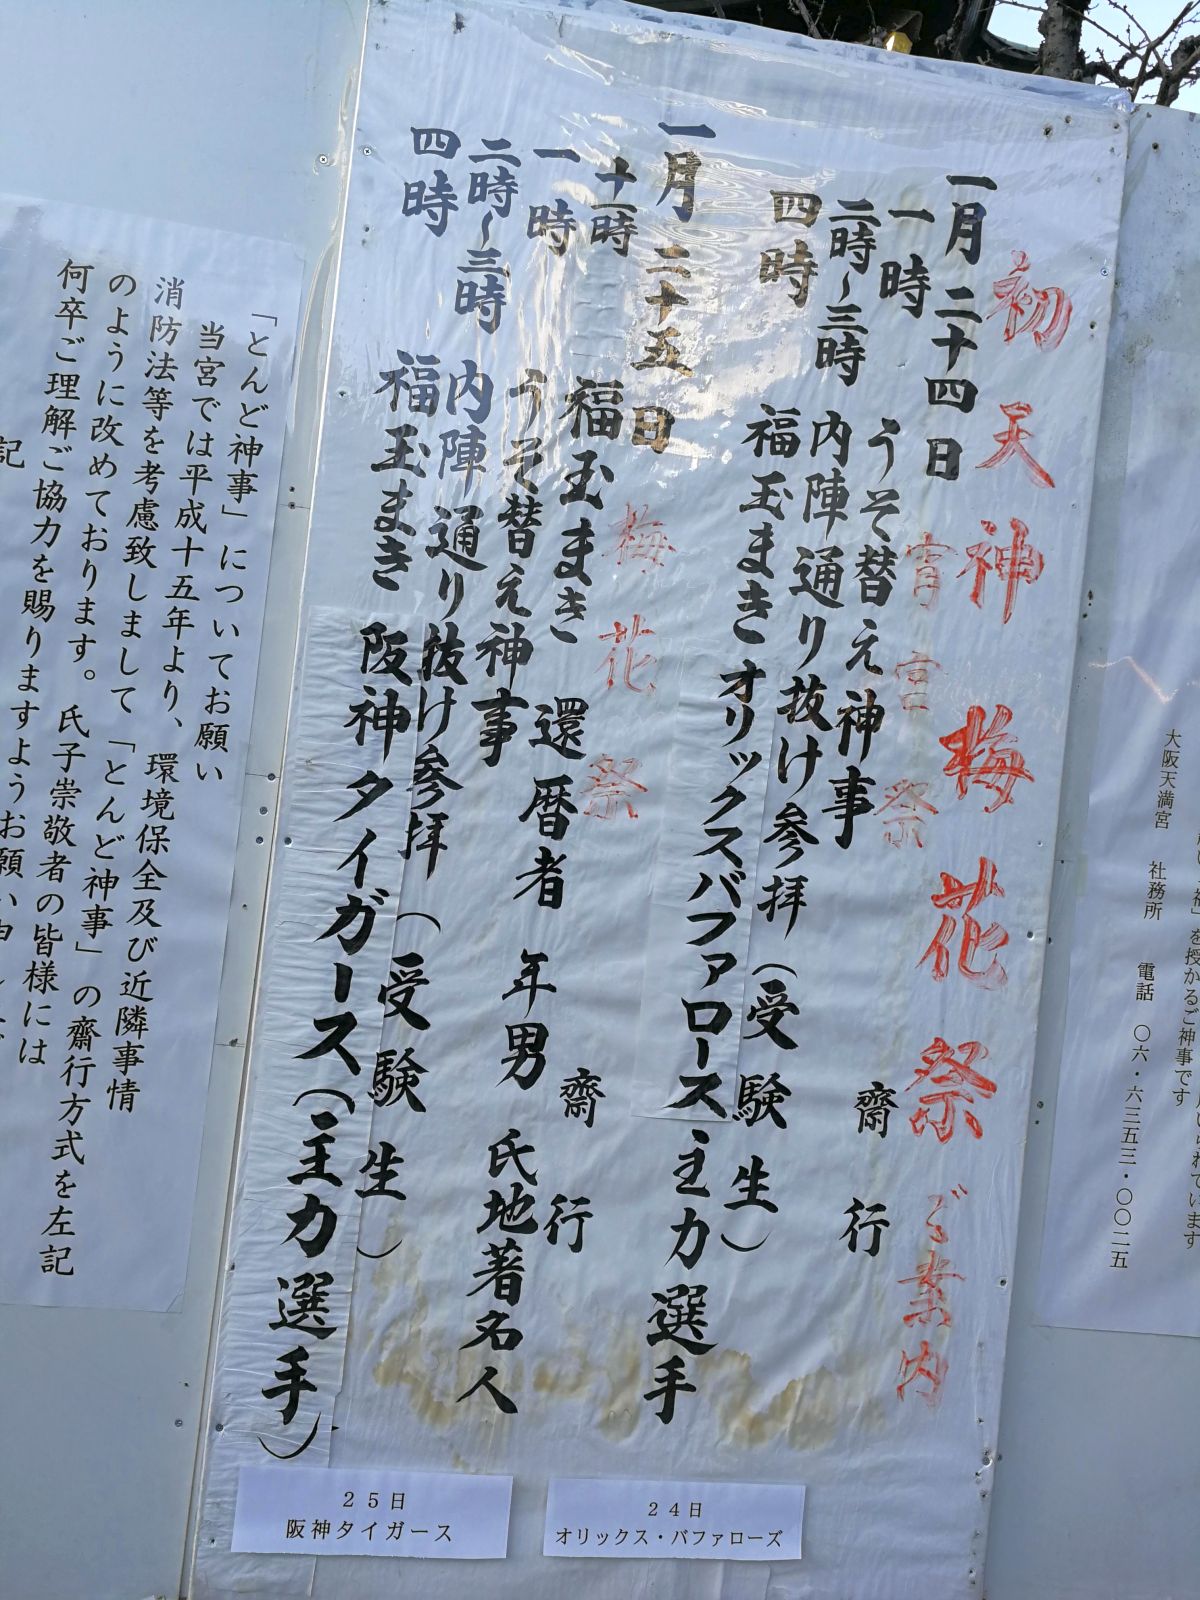 初天神梅花祭ご案内
一月二十四日 宵宮祭 齋行
一時 うそ替え神事
二時~三時 内陣通り抜け参拝(受験生)
四時 福玉まき オリックスバファローズ主力選手
一月二十五日 梅花祭 齋行
十一時 福玉まき 還暦者 年男 氏地著名人
一時 うそ替え神事
二時~三時 内陣通り抜け参拝(受験生)
四時 福玉まき 阪神タイガース(主力選手)
24日
オリックス・バファローズ
25日
阪神タイガース
を授かるご神事です
大阪天満宮 社務所 電話 〇六・六三五三・〇〇二五
「とんど神事」についてお願い
当宮では平成十五年より、環境保全及び近隣事情
消防法等を考慮致しまして「とんど神事」の齋行方式を左記
のように改めております。氏子崇敬者の皆様には
何卒ご理解ご協力を賜りますようお願い申し
記